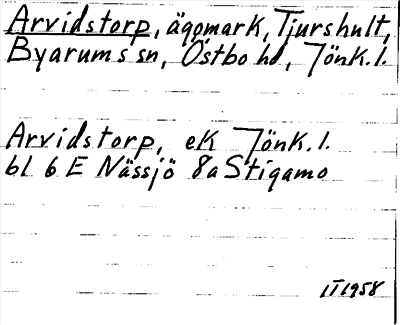 Arvidstorp, ägomark, Tjurshult,
Byarums sn, Östbo hd, Jönk.l.
Arvidstorp, ek Jönk.l.
bl 6 E Nässjö 8a Stigamo
IT1958